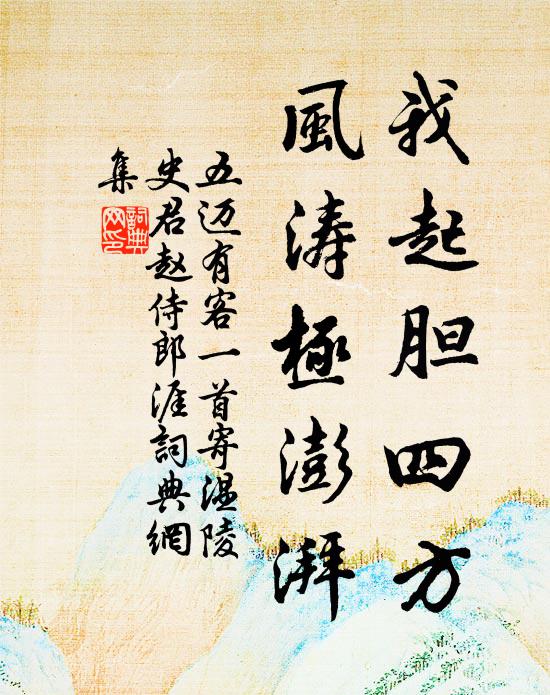 我起胆四方
風涛極澎湃
五迈有客一首寄温陵
史君赵侍郎涯詞典網
集
詞典网印